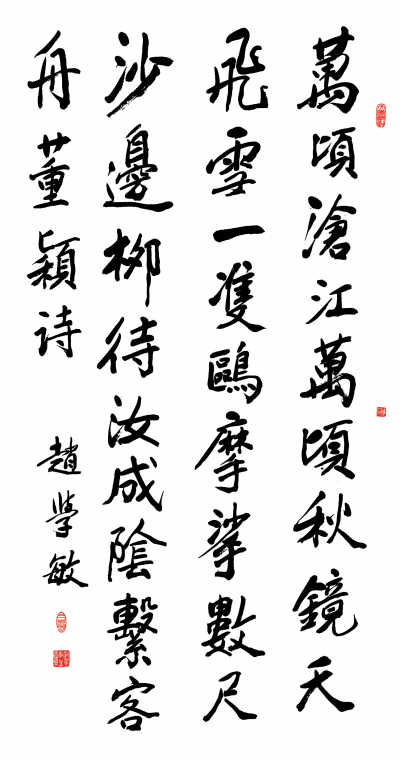 萬頃滄江萬頃秋鏡天
飛雪一隻鷗摩挲數尺
沙邊柳待汝成陰繫客
舟董穎詩
趙學敏